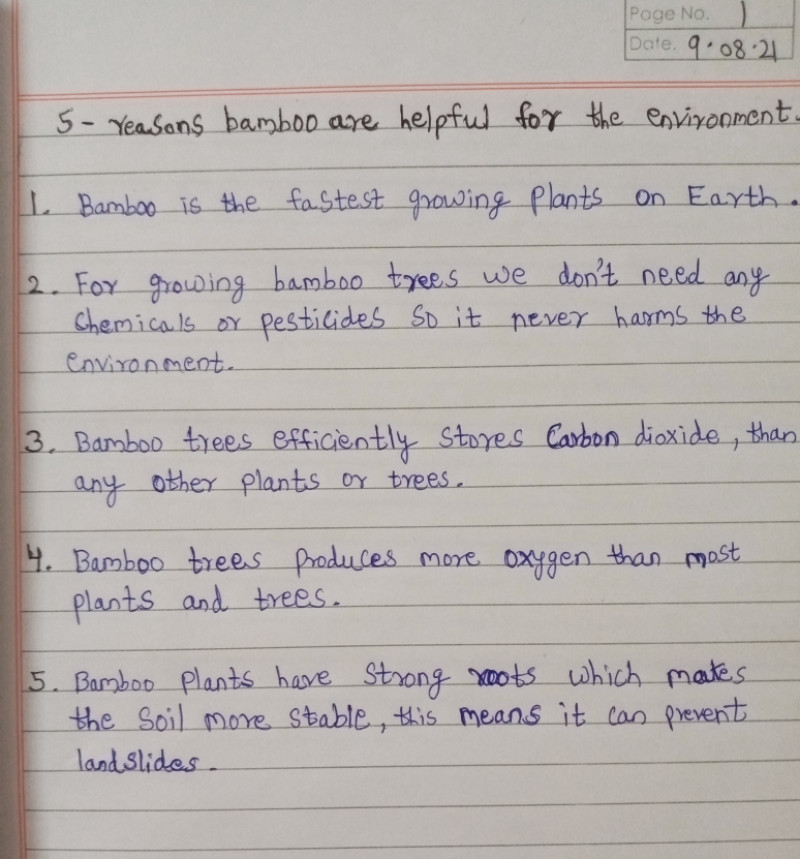 Page No. 1
Date. 9.08.21
5 - reasons bamboo are helpful for the environment.
1. Bamboo is the fastest growing plants on Earth.
2. For growing bamboo trees we don't need any
chemicals or pesticides so it never harms the
environment.
3. Bamboo trees efficiently stores Carbon dioxide, than
any other plants or trees.
4. Bamboo trees produces more oxygen than most
plants and trees.
5. Bamboo plants have strong roots which makes
the soil more stable, this means it can prevent
landslides.